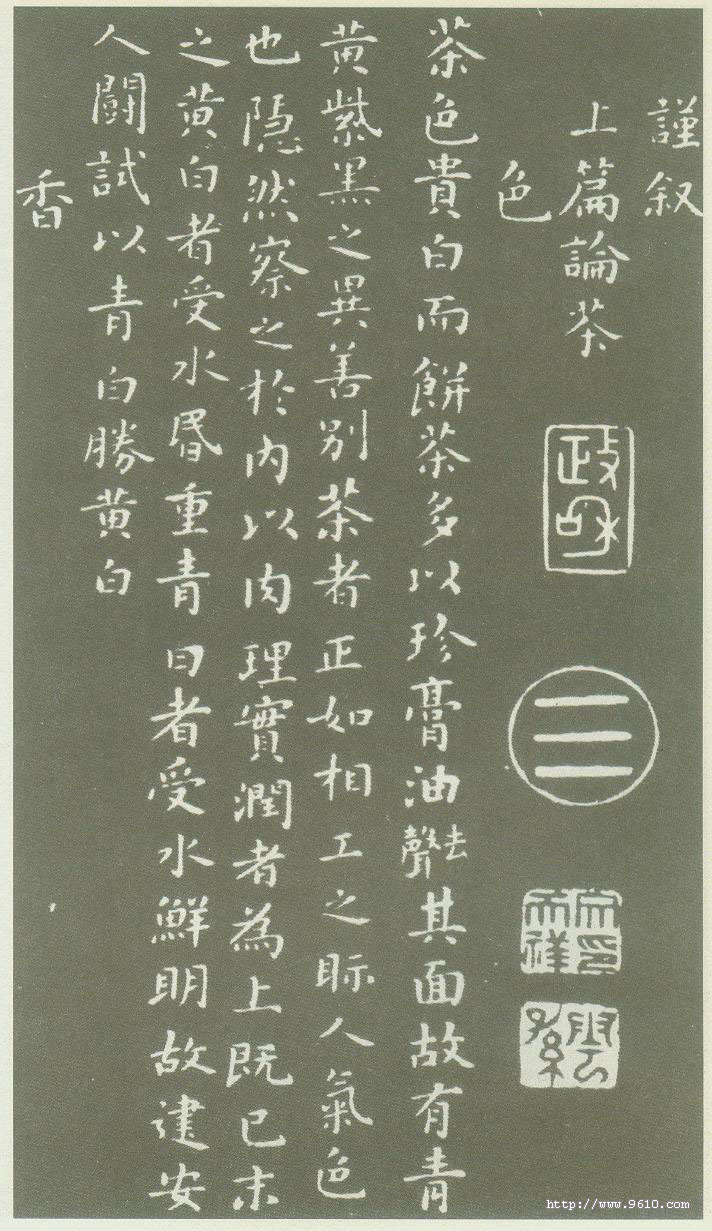 謹叙
上篇論茶
色
政和
茶色貴白而餅茶多以珍膏油去聲其面故有青
黄紫黒之異善別茶者正如相工之眎人氣色
也隠然察之於内以肉理實潤者為上既已末
之黄白者受水昬重青白者受水鮮明故建安
人鬭試以青白勝黄白
香
http://www.9610.com